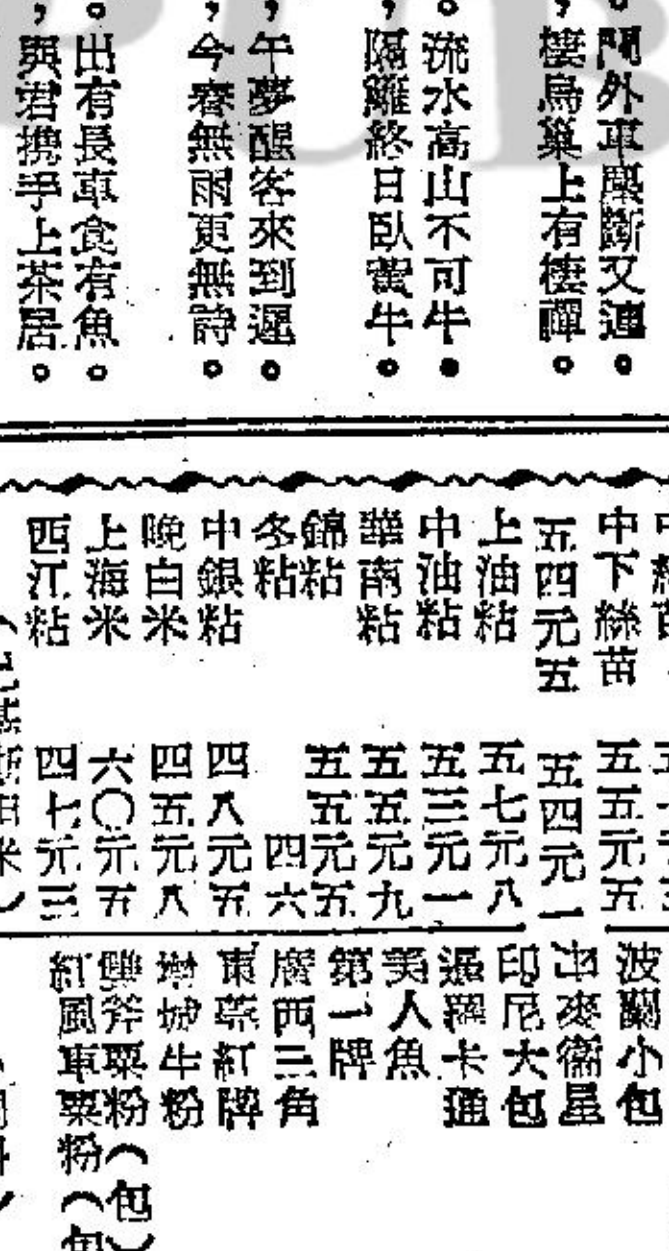 。門外車塵斷又連。
，棲鳥巢上有棲禪。
。流水高山不可牛。
，隔籬終日臥蠻牛。
，午夢醒客來到遲。
，今春無雨更無詩。
。出有長車食有魚。
，與君携手上茶居。
中下絲苗 五五元五
五四元五 五四元一
上油粘 五七元八
中油粘 五三元一
華南粘 五五元九
錦粘 五五元五
冬粘 四六
中銀粘 四八元五
晚白米 四五元八
上海米 六〇元五
西江粘 四七元三
波蘭小包
屯麥衞星
印尼大包
暹羅卡通
美人魚
第一牌
廣西三角
東莞紅牌
城牛粉
斧粟粉（包）
紅風車粟粉（包